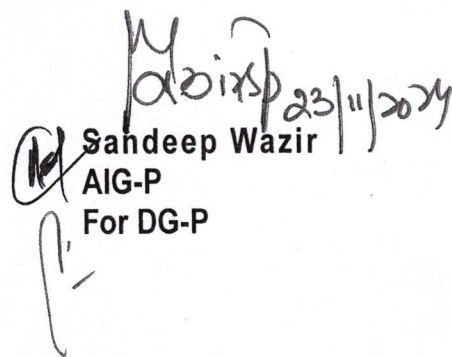 23/11/2024
Sandeep Wazir
AIG-P
For DG-P